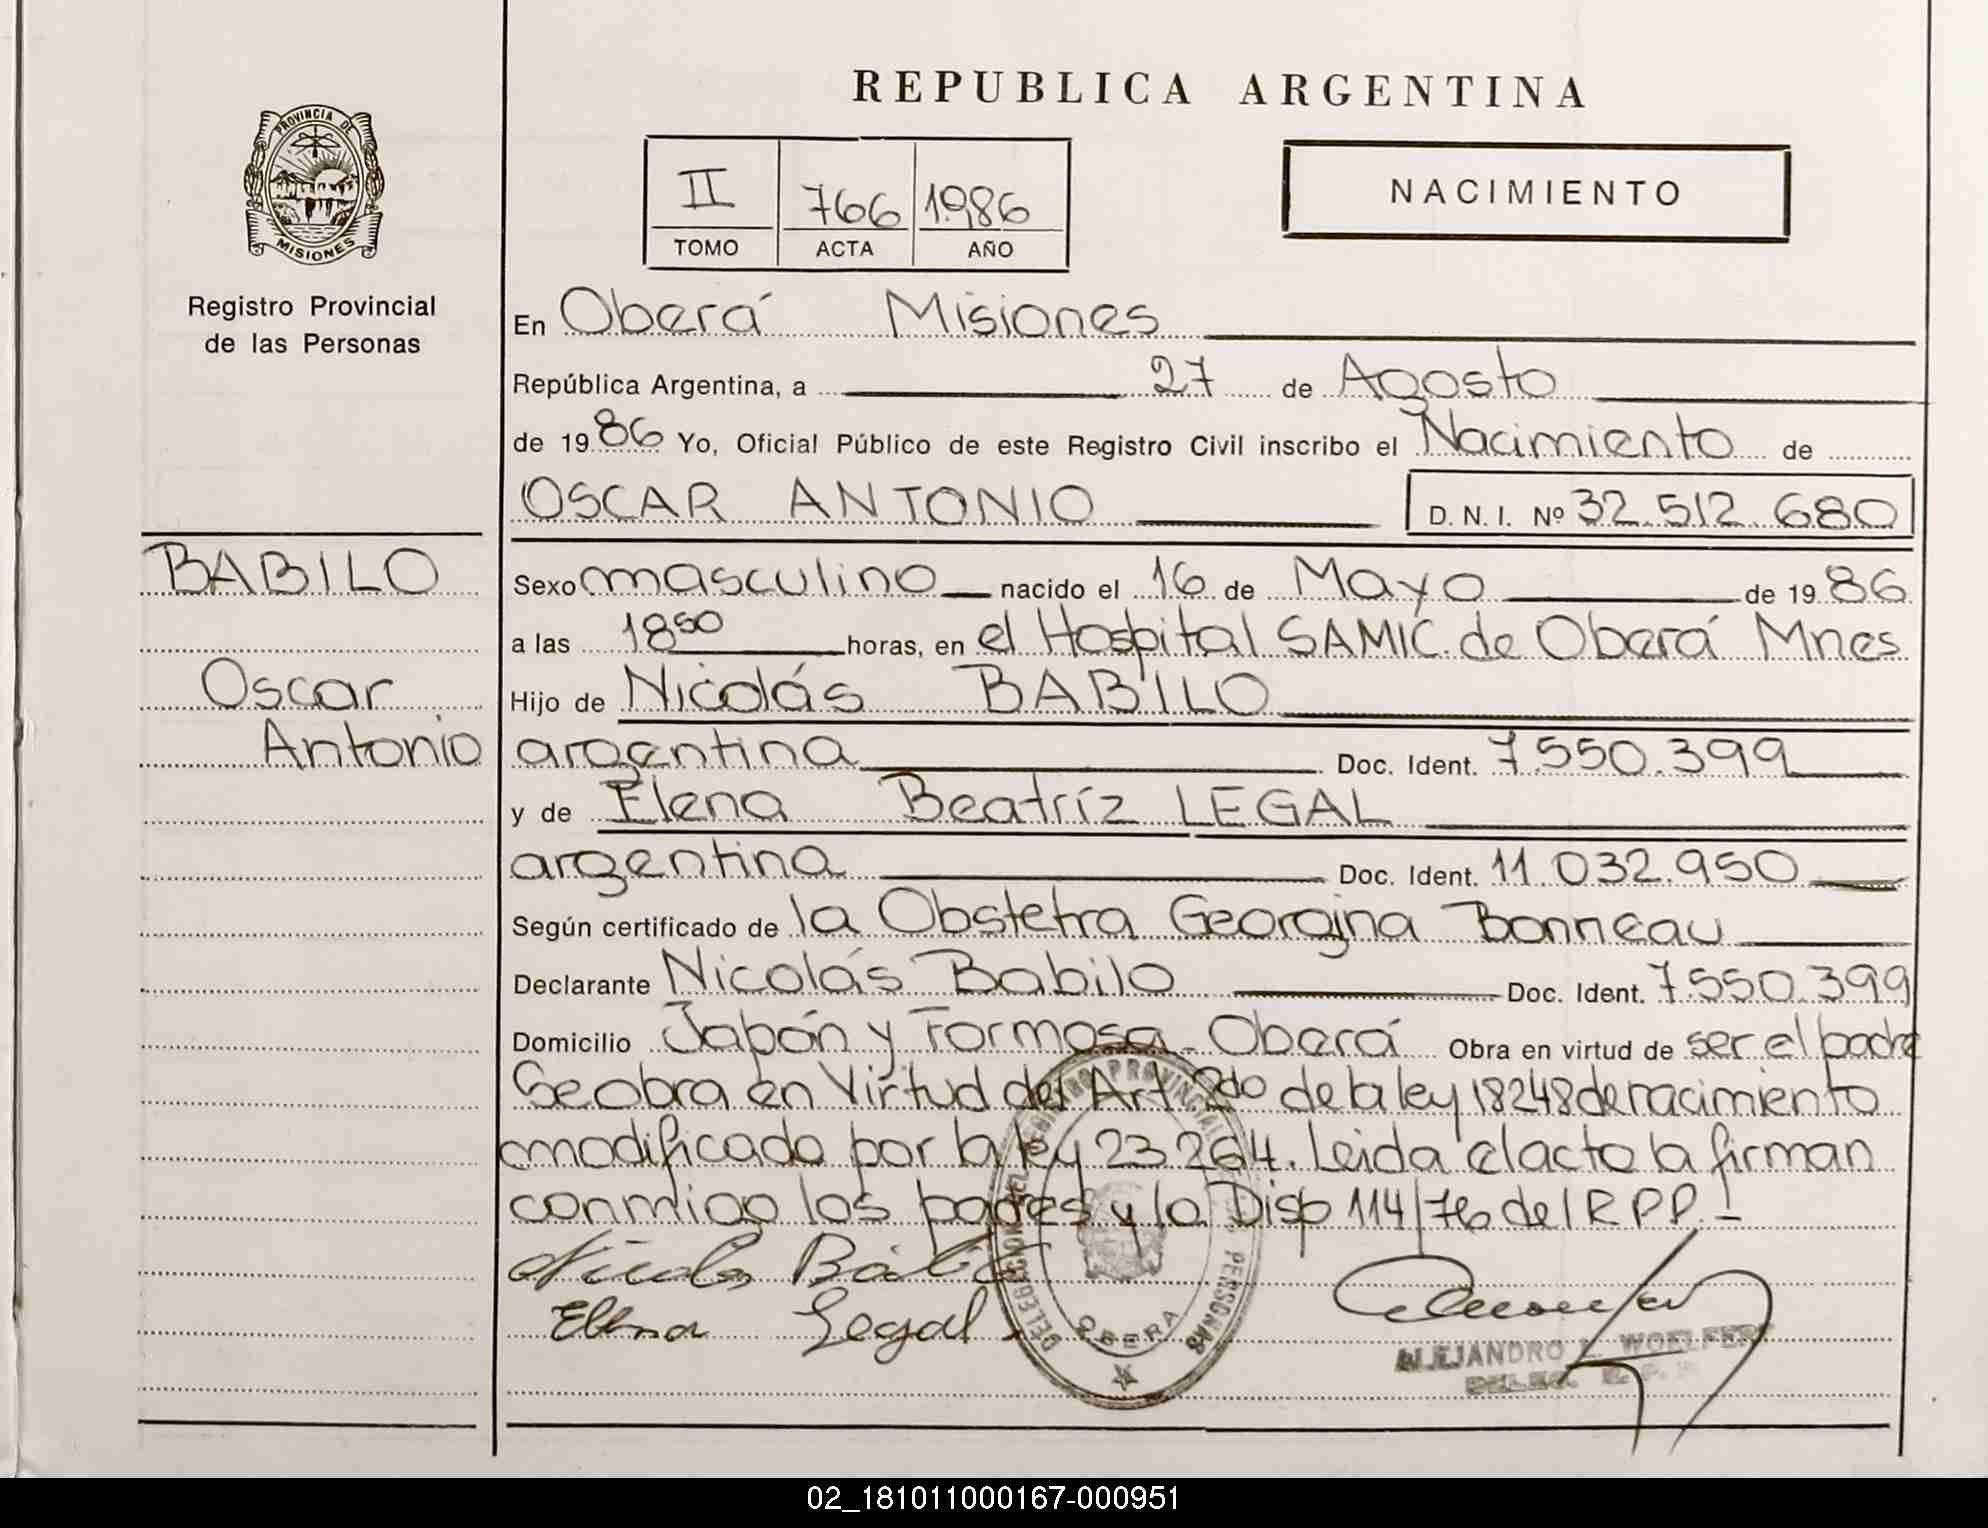 REPUBLICA ARGENTINA
PROVINCIA DE
MISIONES
Registro Provincial
de las Personas
II 766 1986
TOMO ACTA AÑO
NACIMIENTO
En Oberá Misiones
República Argentina, a 27 de Agosto
de 1986 Yo, Oficial Público de este Registro Civil inscribo el Nacimiento de
OSCAR ANTONIO D. N. I. Nº 32.512.680
BABILO
Oscar
Antonio
Sexo masculino nacido el 16 de Mayo de 1986
a las 18 50 horas, en el Hospital SAMIC. de Oberá Mnes
Hijo de Nicolás BABILO
argentina Doc. Ident. 7.550.399
y de Elena Beatríz LEGAL
argentina Doc. Ident. 11.032.950
Según certificado de la Obstetra Georgina Bonneau
Declarante Nicolás Babilo Doc. Ident. 7.550.399
Domicilio Japón y Formosa - Oberá Obra en virtud de ser el padre
Se obra en Virtud del Art 2do de la ley 18248 de nacimiento
modificado por la ley 23.264. Leida el acta la firman
conmigo los padres y la Disp 114/76 del R P P. -
Nicolas Babilo
Elena Legal
DELEGACION DEL REGISTRO PROVINCIAL DE LAS PERSONAS
OBERA
ALEJANDRO L. WOELFERT
DELEG. R. P. P.
02_181011000167-000951